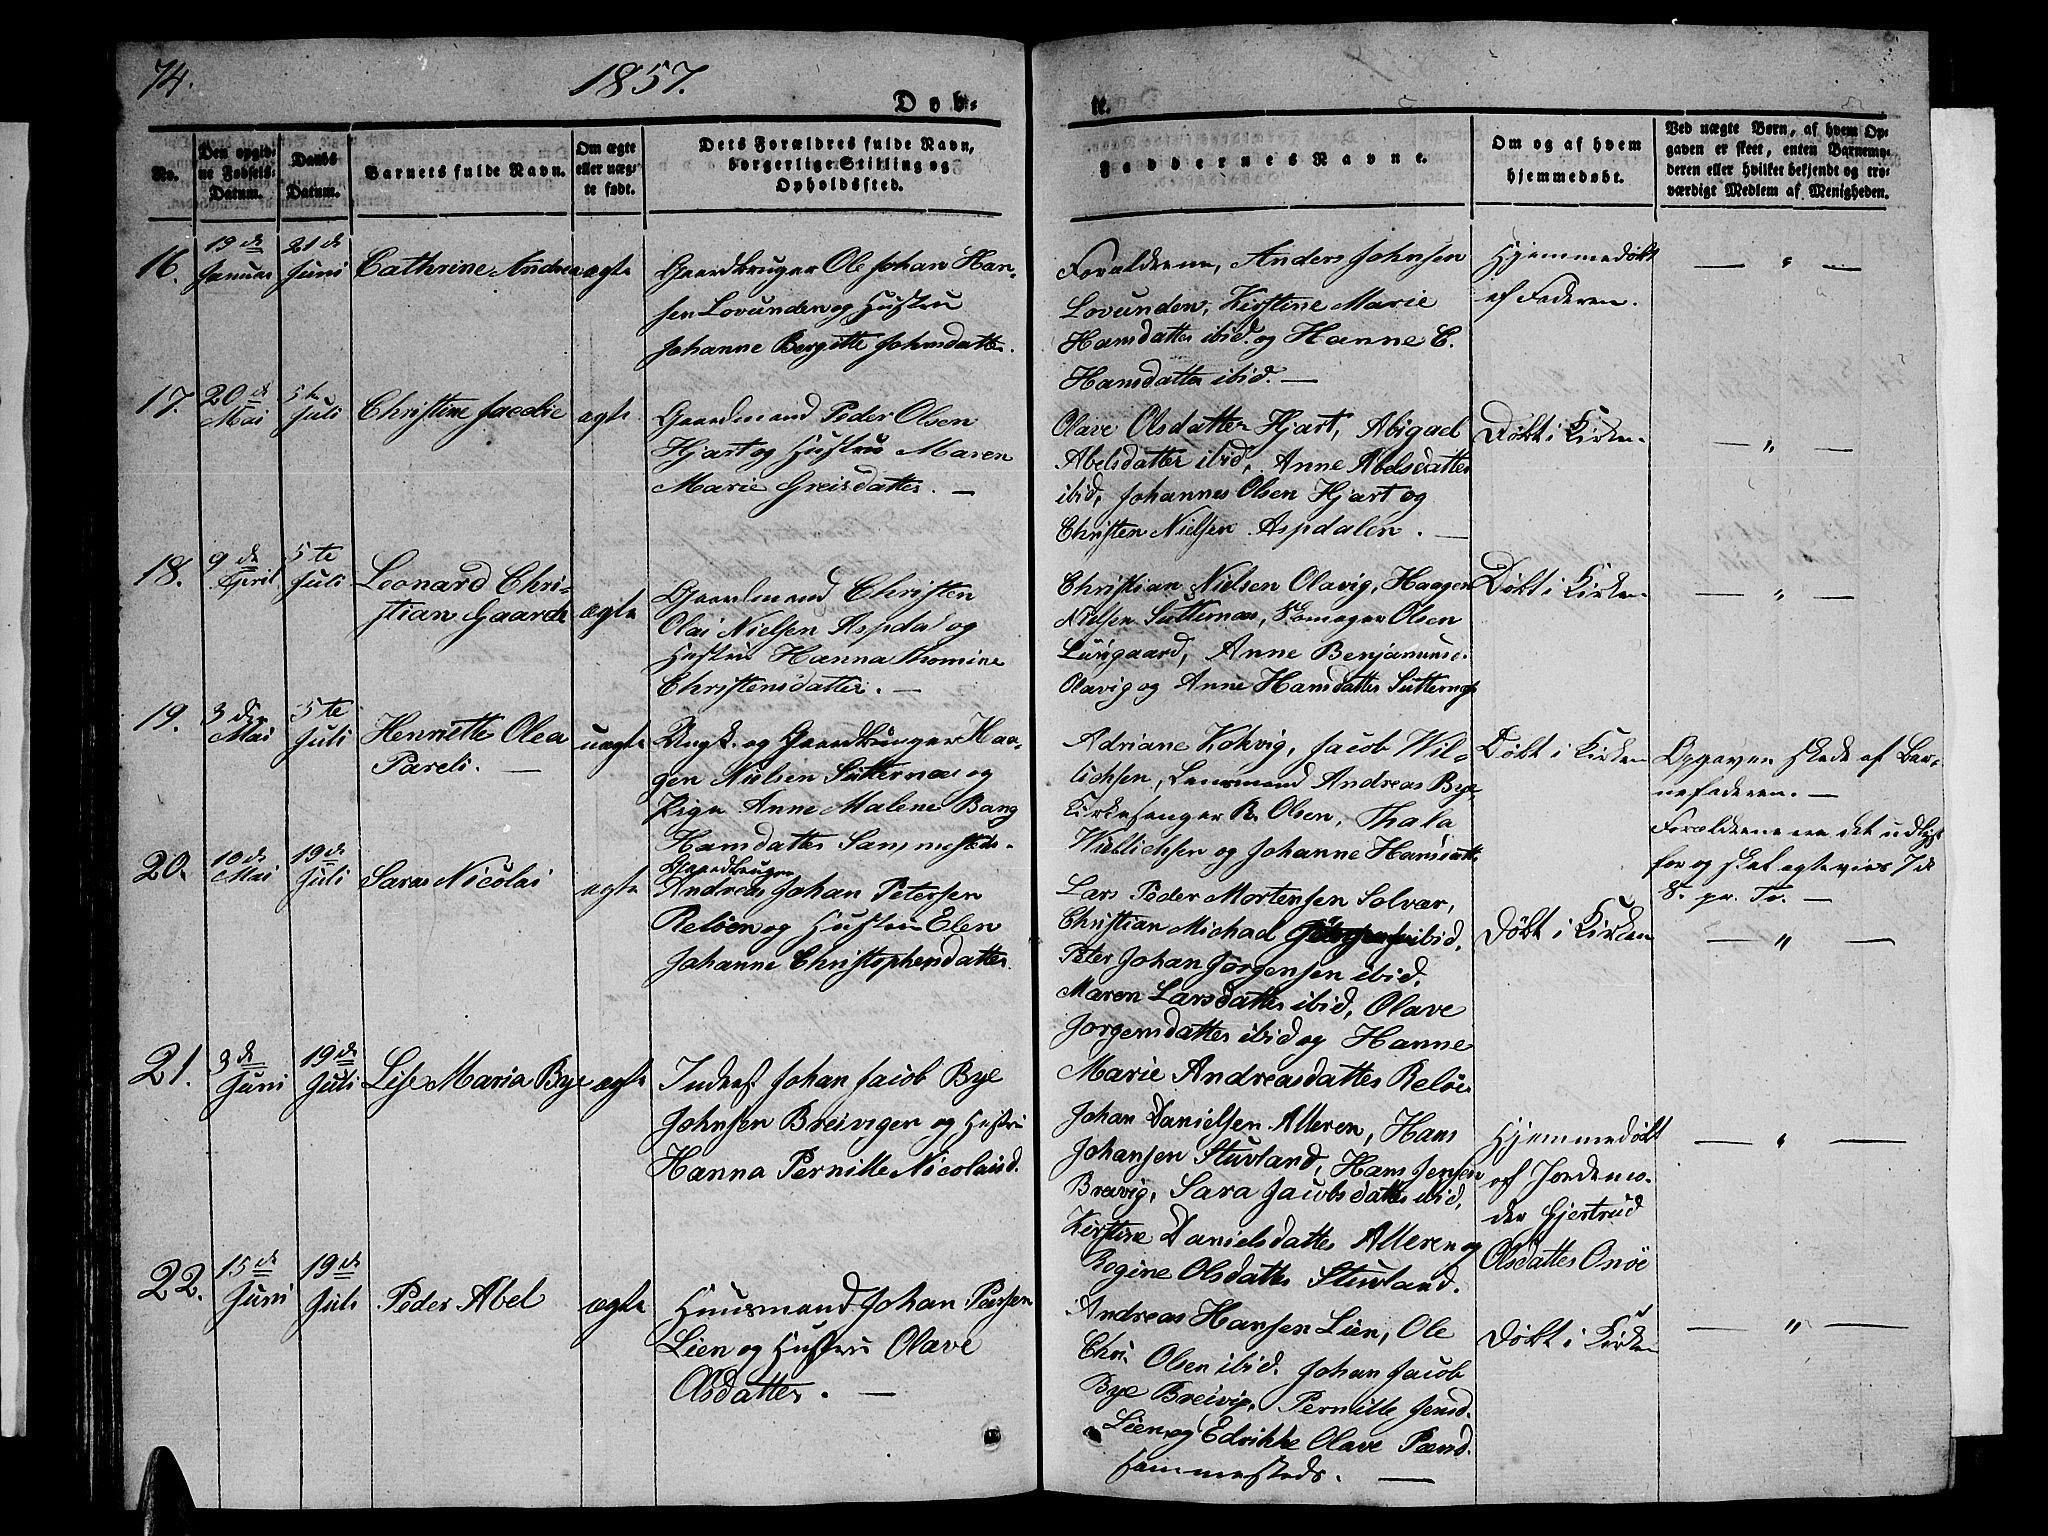 74.
1857.
Døb-
te.
No.
Den opgiv-
ne Fødsels-
Datum.
Daabs
Datum.
Barnets fulde Navn.
Om ægte
eller uæg-
te født.
Dets Forældres fulde Navn,
borgerlige Stilling og
Opholdssted.
Faddernes Navne.
Om og af hvem
hjemmedøbt.
Ved uægte Børn, af hvem Op-
gaven er skeet, enten Barnemo-
deren eller hvilket bekjendt og tro-
værdigt Medlem af Menigheden.
16.
19de
Januar
21de
Juni
Cathrine Andrea
ægte
Gaardbruger Ole Johan Han-
sen Lovunden og Hustru
Johanne Bergitte Johnsdatter.
Forældrene, Anders Johnsen
Lovunden, Kirstine Marie
Hansdatter ibid. og Hanne C.
Hansdatter ibid. —
Hjemmedøbt
af Faderen.
— " —
17.
20de
Mai
5te
Juli
Christine Jacobie
ægte
Gaardmand Peder Olsen
Hjart og Hustru Maren
Marie Greisdatter. —
Olave Olsdatter Hjart, Abigael
Abelsdatter ibid, Anne Abelsdatter
ibid, Johannes Olsen Hjart og
Christen Nielsen Aspdalen. —
Døbt i Kirken
— " —
18.
9de
April
5te
Juli
Leonard Chri-
stian Gaarde
ægte
Gaardmand Christen
Olai Nielsen Aspdal og
Hustru Hanna Thomine
Christensdatter. —
Christian Nielsen Olavig, Haagen
Nielsen Sutternæs, Olsen
Lurøgaard, Anne Benjaminsd.
Olavig og Anne Hansdatter Sutternæs
Døbt i Kirken
— " —
19.
3die
Mai
5te
Juli
Henriette Olea
Pareli. —
uægte
Ungk. og Gaardbruger Haa-
gen Nielsen Sutternæs og
Pige Anne Malene Bang
Hansdatter Sammesteds.
Adriane Kokvig, Jacob Wil-
lichsen, Lensmand Andreas Bye,
Kirkesanger R. Olsen, Thala
Willichsen og Johanne Hansdatt.
Døbt i Kirken
Opgaven skede af Bar-
nefaderen. —
Forældrene ere det udlyst
for og skal ægtevies 7de
S. pr. Tr. —
20.
10de
Mai
19de
Juli
Saras Nicolai
ægte
Gaardbruger
Andreas Johan Petersen
Reløen og Hustru Elen
Johanne Christophersdatter.
Lars Peder Mortensen Solvær,
Christian Michael Jørgensen ibid,
Peter Johan Jørgensen ibid,
Maren Larsdatter ibid, Olave
Jørgensdatter ibid og Hanne
Marie Andreasdatter Reløe.
Døbt i Kirken
— " —
21.
3de
Juni
19de
Juli
Lise Maria Bye
ægte
Inderst Johan Jacob Bye
Johnsen Breivigen og Hustru
Hanna Pernille Nicolaisd.
Johan Danielsen Alleren, Hans
Johansen Stuvland, Hans Jensen
Breivig, Sara Jacobsdatter ibid,
Kirstine Danielsdatter Alleren og
Rogine Olsdatter Stuvland.
Hjemmedøbt
af Jordemo-
der Gjertrud
Olsdatter Onøe
— " —
22.
15de
Juni
19de
Juli
Peder Abel
ægte
Huusmand Johan Pærsen
Lien og Hustru Olave
Olsdatter. —
Andreas Hansen Lien, Ole
Chr. Olsen ibid. Johan Jacob
Bye Breivig, Pernille Jensd.
Lien, og Edrikke Olave Pærsd.
sammesteds. —
Døbt i Kirken
— " —